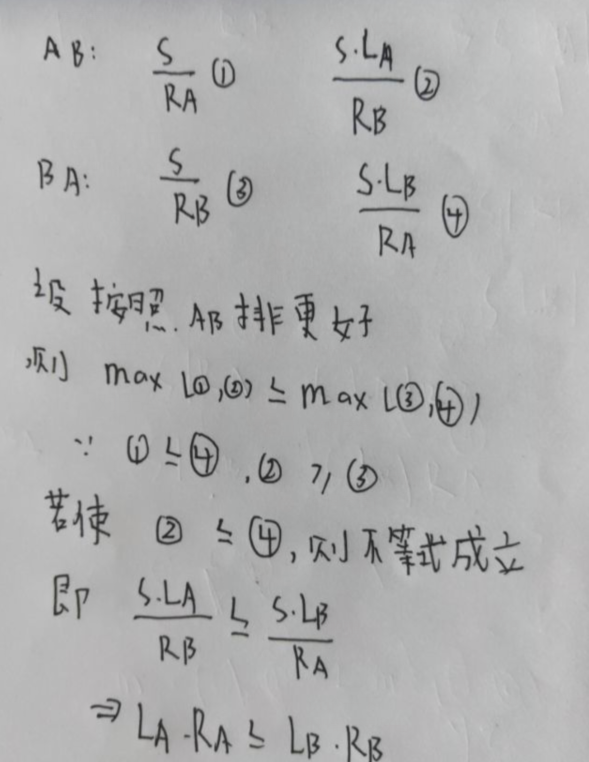 AB: S/RA ① S·LA/RB ②
BA: S/RB ③ S·LB/RA ④
设按照.AB排更好
则 max(①,②) ≤ max(③,④)
∵ ① ≤ ④ , ② ≥ ③
若使 ② ≤ ④, 则不等式成立
即 S·LA/RB ≤ S·LB/RA
⇒ LA·RA ≤ LB·RB